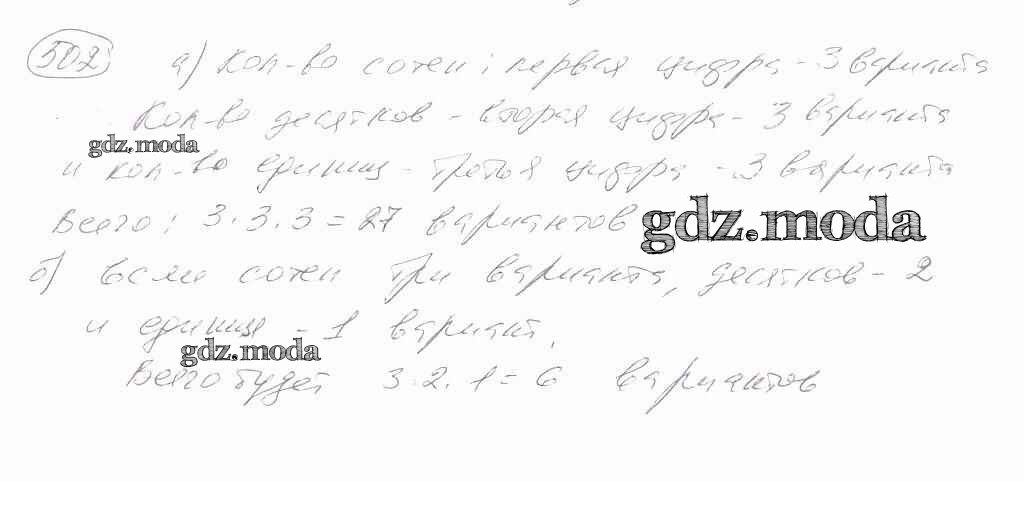 502 а) Кол-во сотен; первая цифра - 3 варианта
Кол-во десятков - вторая цифра - 3 варианта
gdz.moda
и кол-во единиц - третья цифра - 3 варианта
Всего: 3·3·3=27 вариантов
gdz.moda
б) Если сотен три варианта, десятков - 2
и единиц - 1 вариант.
gdz.moda
Всего будет 3·2·1=6 вариантов